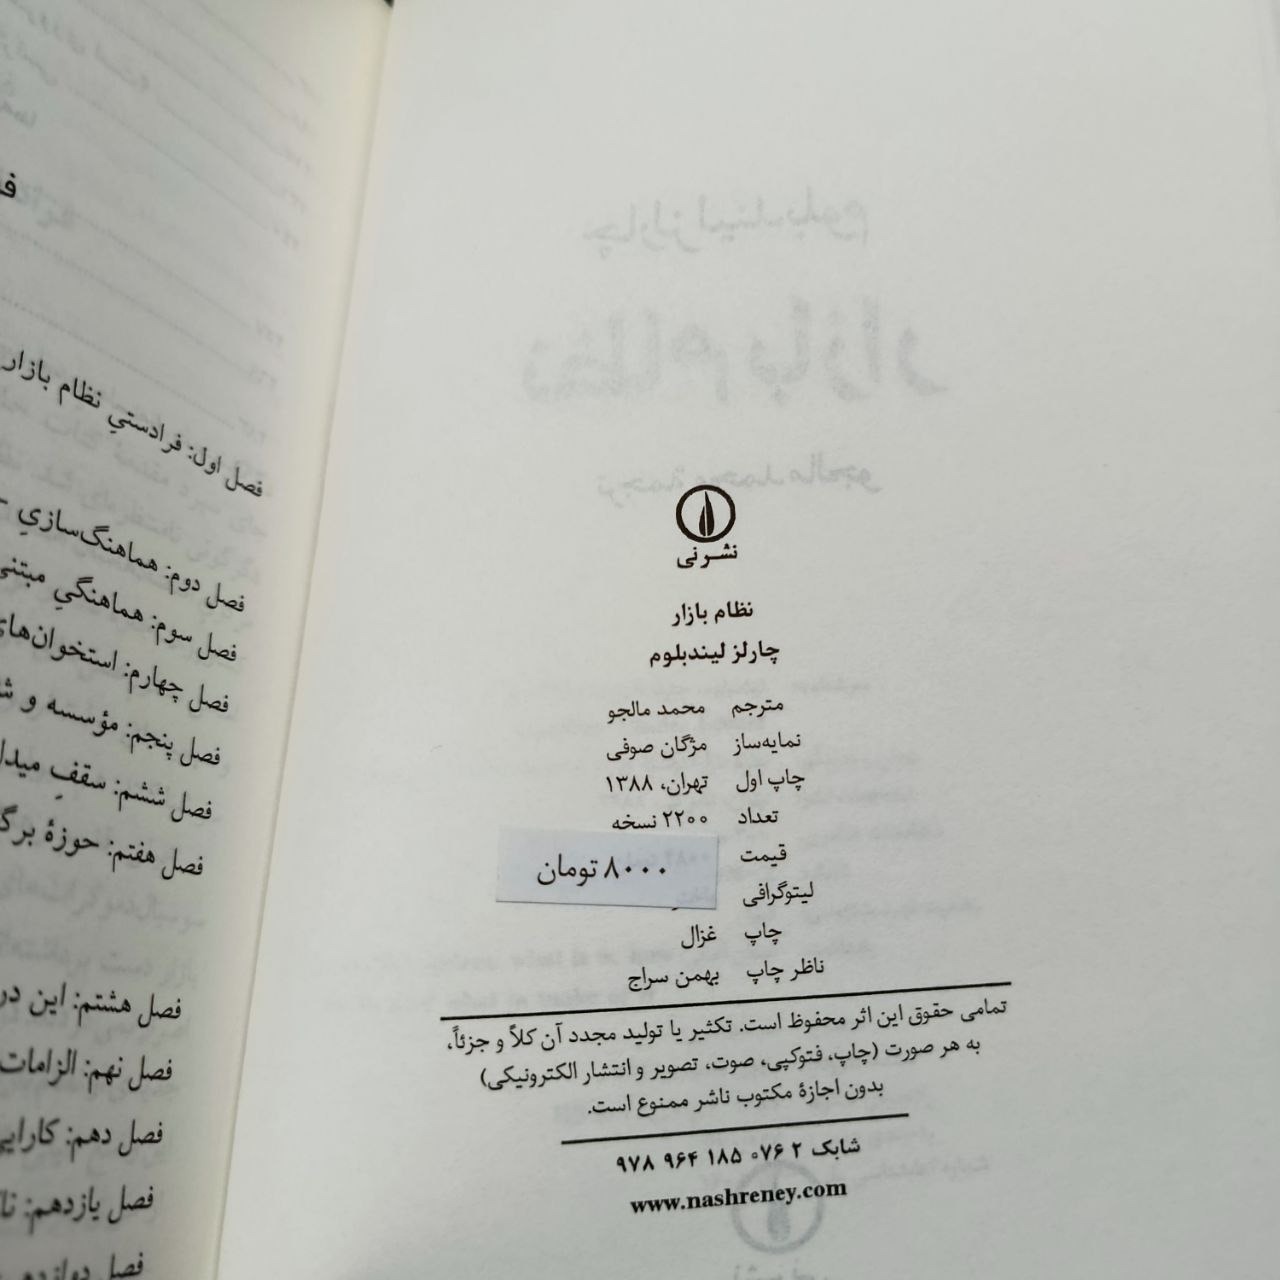 نشر نی
نظام بازار
چارلز لیندبلوم
مترجم محمد مالجو
نمایه‌ساز مژگان صوفی
چاپ اول تهران، ۱۳۸۸
تعداد ۲۲۰۰ نسخه
قیمت ۸۰۰۰ تومان
لیتوگرافی
چاپ غزال
ناظر چاپ بهمن سراج
تمامی حقوق این اثر محفوظ است. تکثیر یا تولید مجدد آن کلاً و جزئاً،
به هر صورت (چاپ، فتوکپی، صوت، تصویر و انتشار الکترونیکی)
بدون اجازهٔ مکتوب ناشر ممنوع است.
شابک ۲ ۰۷۶ ۱۸۵ ۹۶۴ ۹۷۸
www.nashreney.com
فصل اول: فرادستیِ نظام بازار
فصل دوم: هماهنگ‌سازیِ
فصل سوم: هماهنگیِ مبتنی
فصل چهارم: استخوان‌های
فصل پنجم: مؤسسه و
فصل ششم: سقفِ
فصل هفتم: حوزهٔ
فصل هشتم: این
فصل نهم: الزامات
فصل دهم:
فصل یازدهم:
فصل دوازدهم